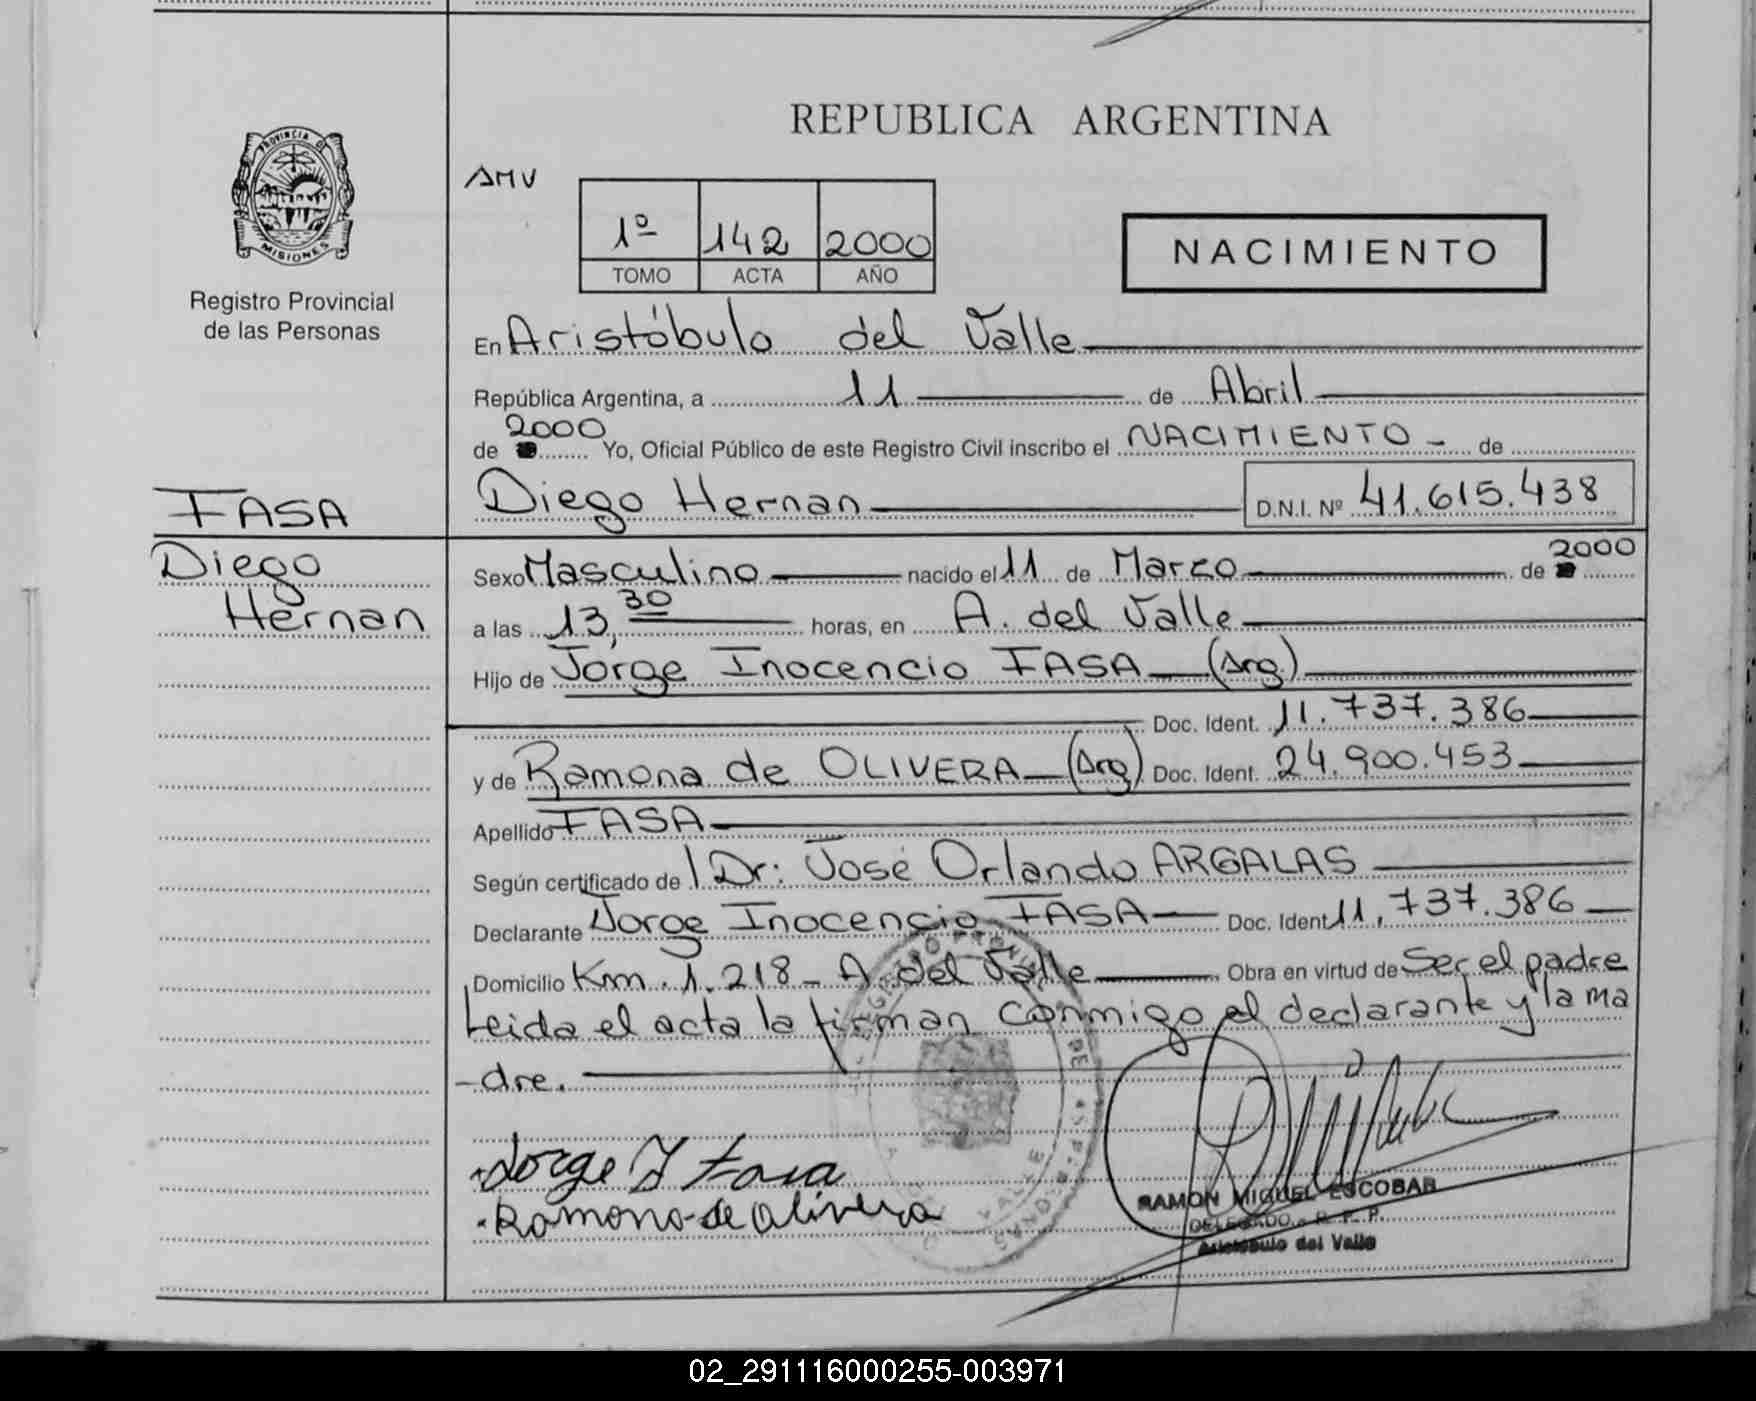 REPUBLICA ARGENTINA
PROVINCIA DE
MISIONES
Registro Provincial
de las Personas
AMV
1º 142 2000
TOMO ACTA AÑO
NACIMIENTO
En Aristóbulo del Valle
República Argentina, a 11 de Abril
de 2000 Yo, Oficial Público de este Registro Civil inscribo el NACIMIENTO - de
Diego Hernan D.N.I. Nº 41.615.438
FASA
Diego
Hernan
Sexo Masculino nacido el 11 de Marzo de 2000
a las 13,30 horas, en A. del Valle
Hijo de Jorge Inocencio FASA (Arg)
Doc. Ident. 11.737.386
y de Ramona de OLIVERA (Arg) Doc. Ident. 24.900.453
Apellido FASA
Según certificado de Dr: José Orlando ARGALAS
Declarante Jorge Inocencio FASA Doc. Ident 11.737.386
Domicilio Km. 1.218 - A. del Valle Obra en virtud de Ser el padre
Leida el acta la firman conmigo el declarante y la ma
-dre.
Jorge I Fasa
Ramona de Olivera
RAMON MIGUEL ESCOBAR
DELEGADO - R. P. P.
Aristobulo del Valle
02_291116000255-003971